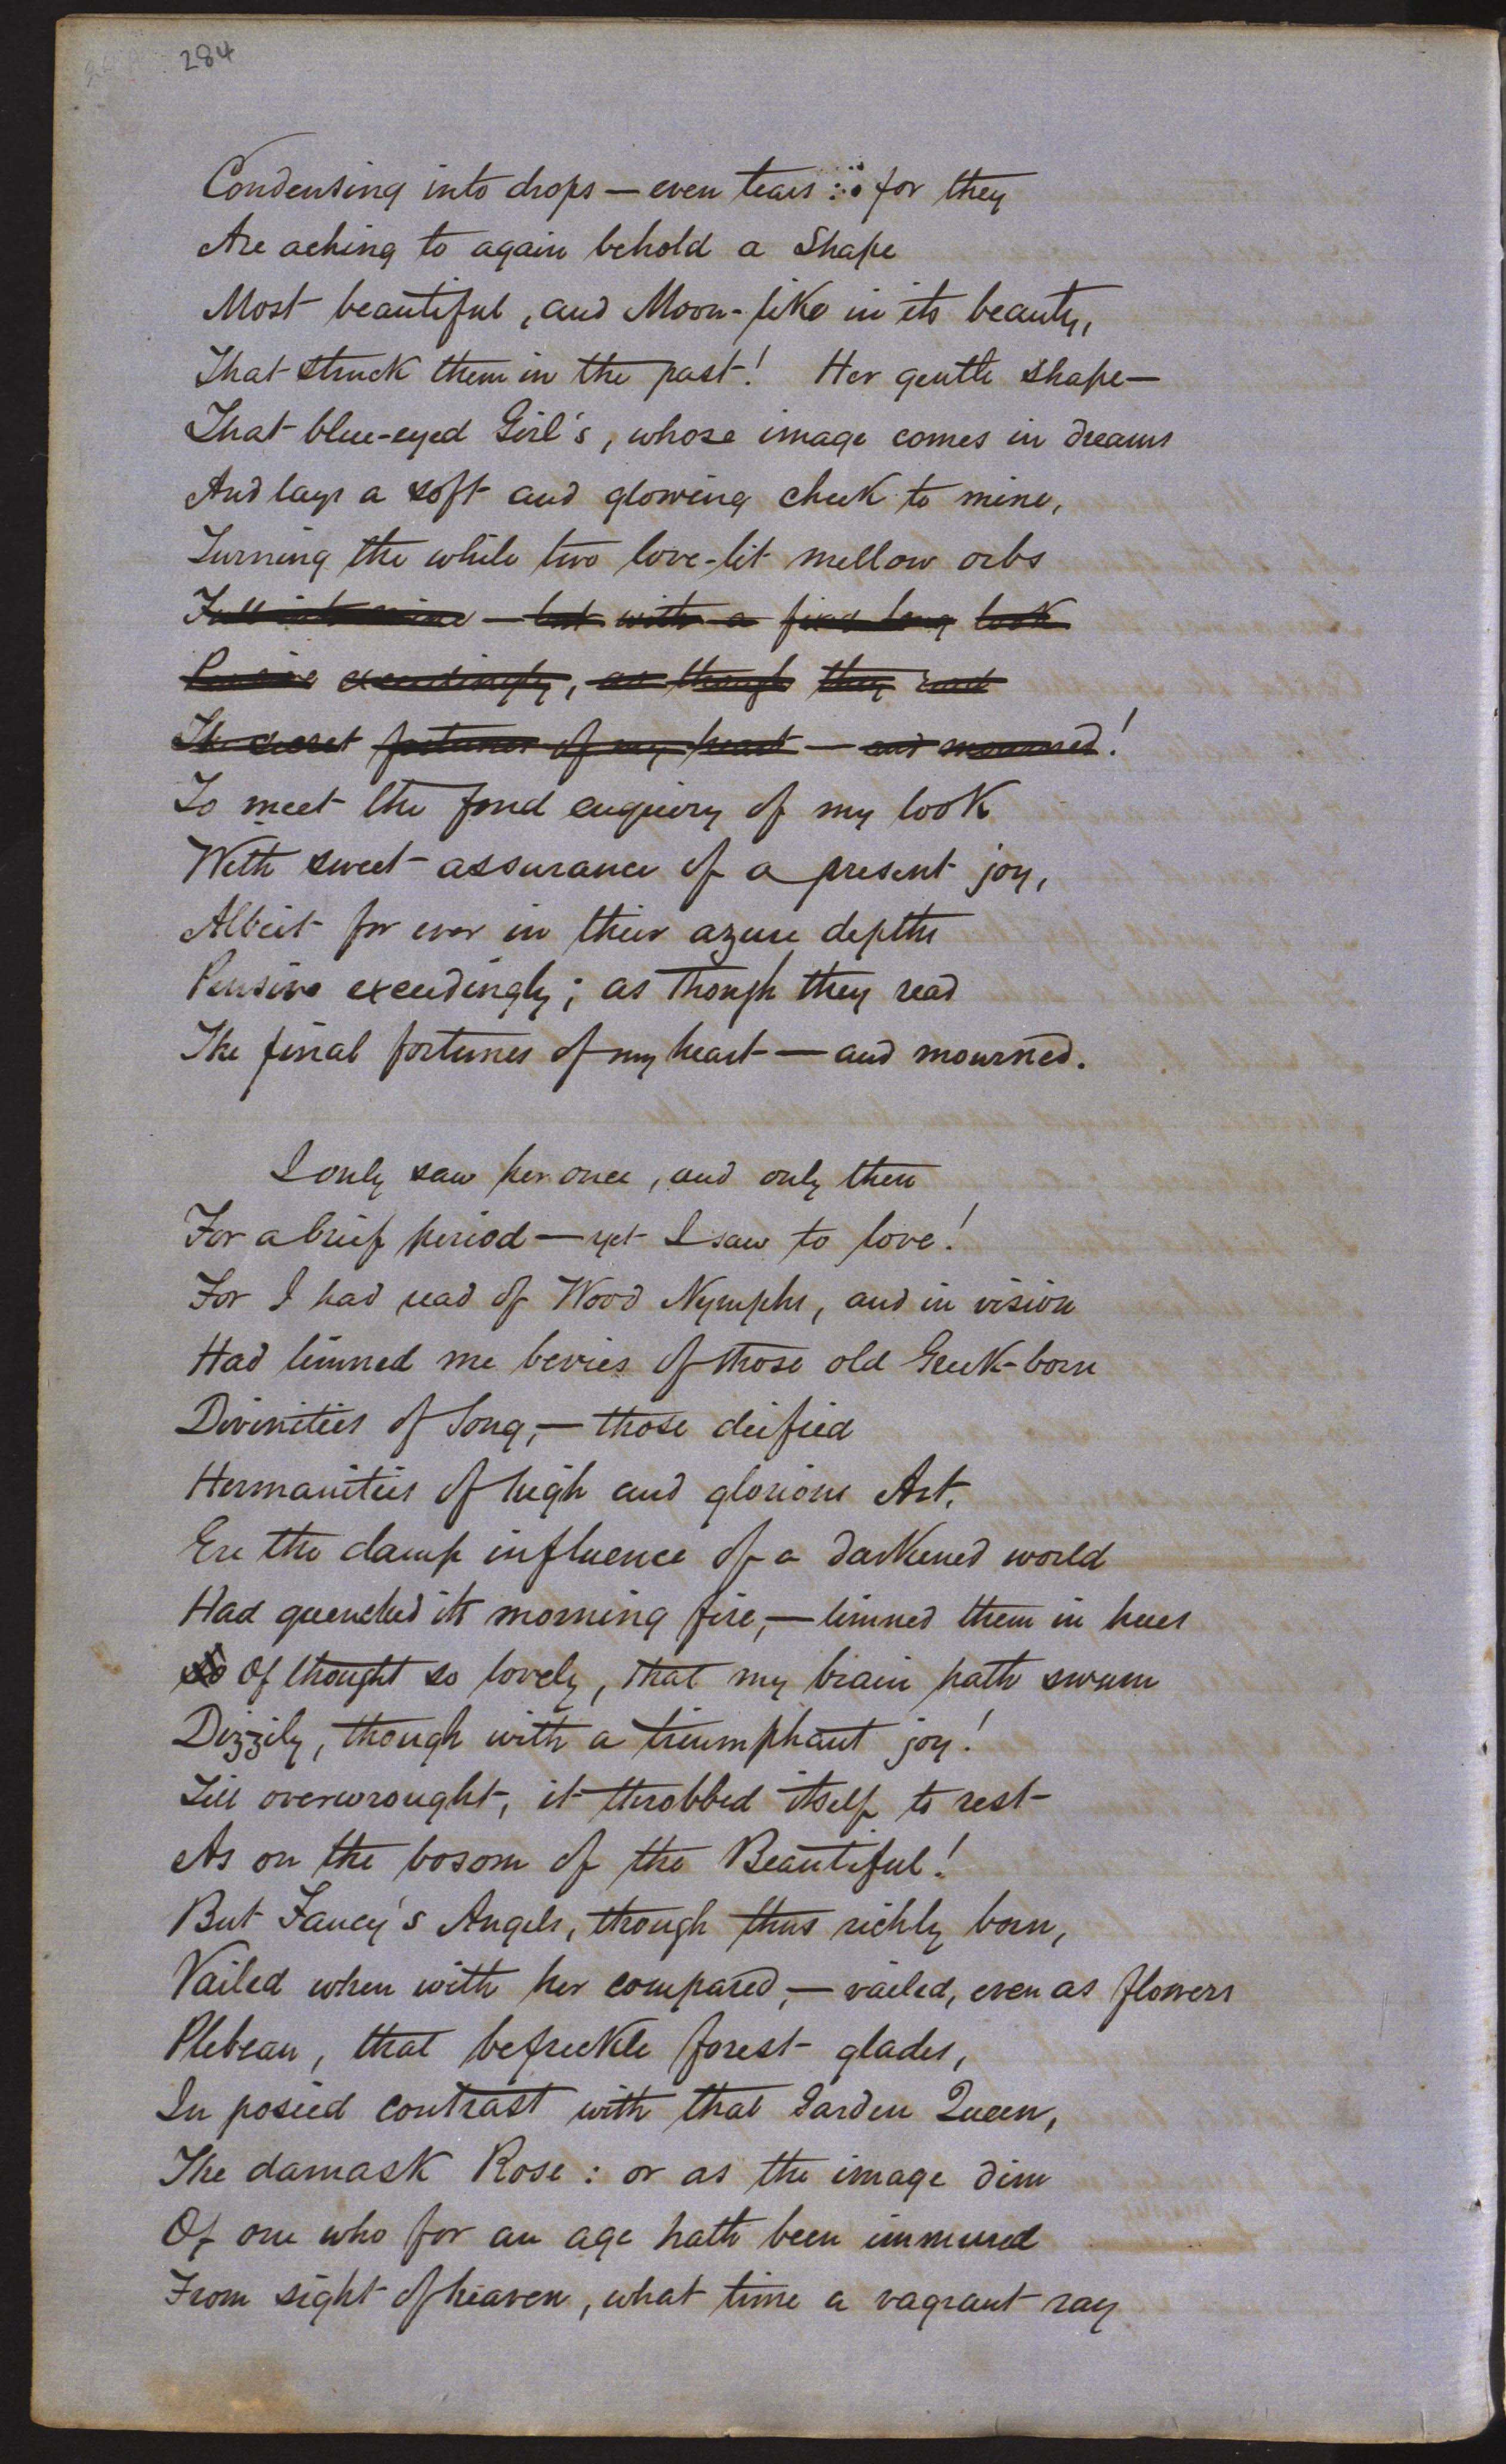 284
Condensing into drops — even tears : for they
Are aching to again behold a Shape
Most beautiful, and Moon-like in its beauty,
That struck them in the past! Her gentle shape —
That blue-eyed Girl's, whose image comes in dreams
And lays a soft and glowing cheek to mine,
Turning the while two love-lit mellow orbs
Full into mine — but with a fixed long look
Pensive exceedingly, as though they read
The secret fortunes of my heart — and mourned!
To meet the fond enquiry of my look
With sweet assurance of a present joy,
Albeit for ever in their azure depths
Pensive exceedingly; as though they read
The final fortunes of my heart — and mourned.
I only saw her once, and only then
For a brief period — yet I saw to love!
For I had read of Wood Nymphs, and in vision
Had limned me bevies of those old Greek-born
Divinities of Song, — those deified
Hermanities of high and glorious Art,
Ere the damp influence of a darkened world
Had quenched its morning fire, — limned them in hues
so Of thought so lovely, that my brain hath swum
Dizzily, though with a triumphant joy!
Till overwrought, it throbbed itself to rest
As on the bosom of the Beautiful!
But Fancy's Angels, though thus richly born,
Vailed when with her compared, — vailed, even as flowers
Plebean, that befreckle forest glades,
In posied contrast with that Garden Queen,
The damask Rose : or as the image dim
Of one who for an age hath been immured
From sight of heaven, what time a vagrant ray